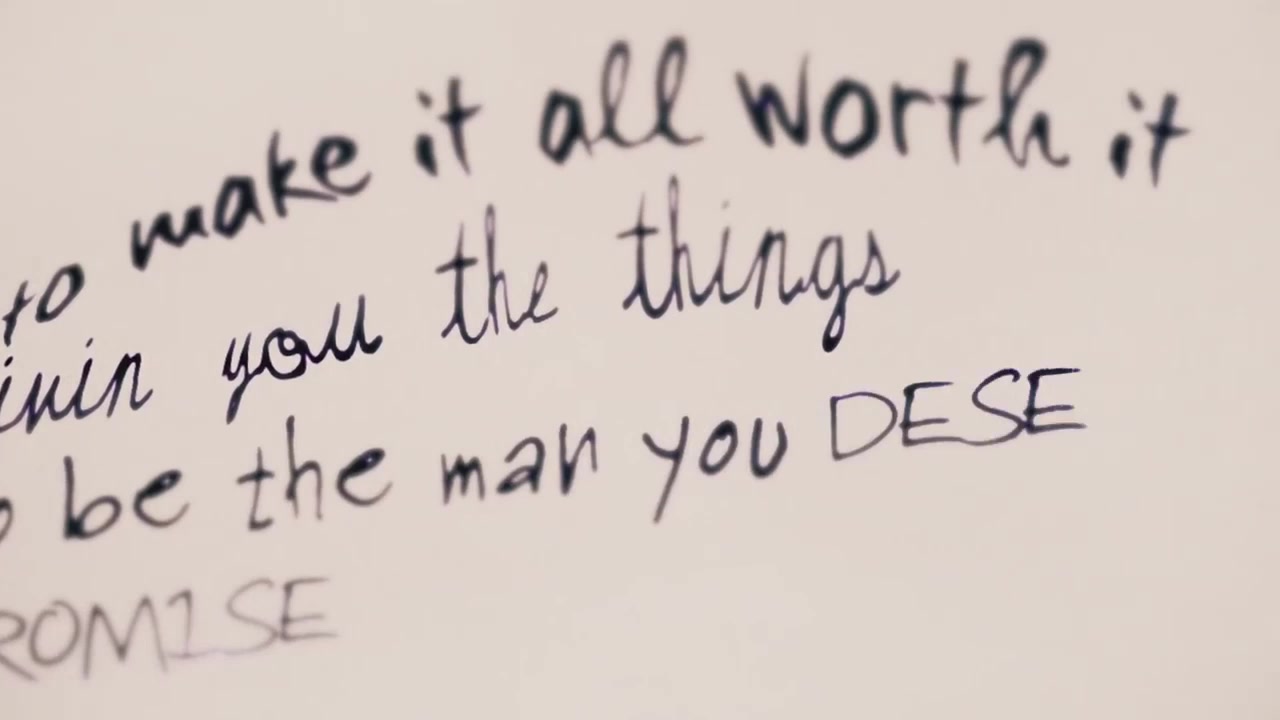 to make it all worth it
ivin you the things
be the man you DESE
ROMISE